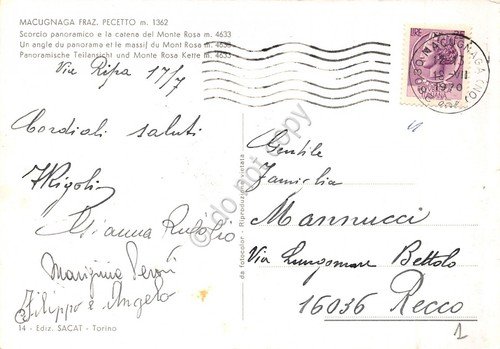 MACUGNAGA FRAZ. PECETTO m. 1362
Scorcio panoramico e la carena del Monte Rosa m. 4633
Un angle du panorama et le massif du Mont Rosa m. 4633
Panoramische Teilansicht und Monte Rosa Kette m. 4633
Via Ripa 17/7
Cordiali saluti
Gianna
Filippo e Angelo
14 - Ediz. SACAT - Torino
da fotocolor - Riproduzione vietata
do not copy
LIRE 25
MACUGNAGA (NO)
-VII
1970
Gentile
Famiglia
Mannucci
Via Lungomare Bettolo
16036 Recco
1